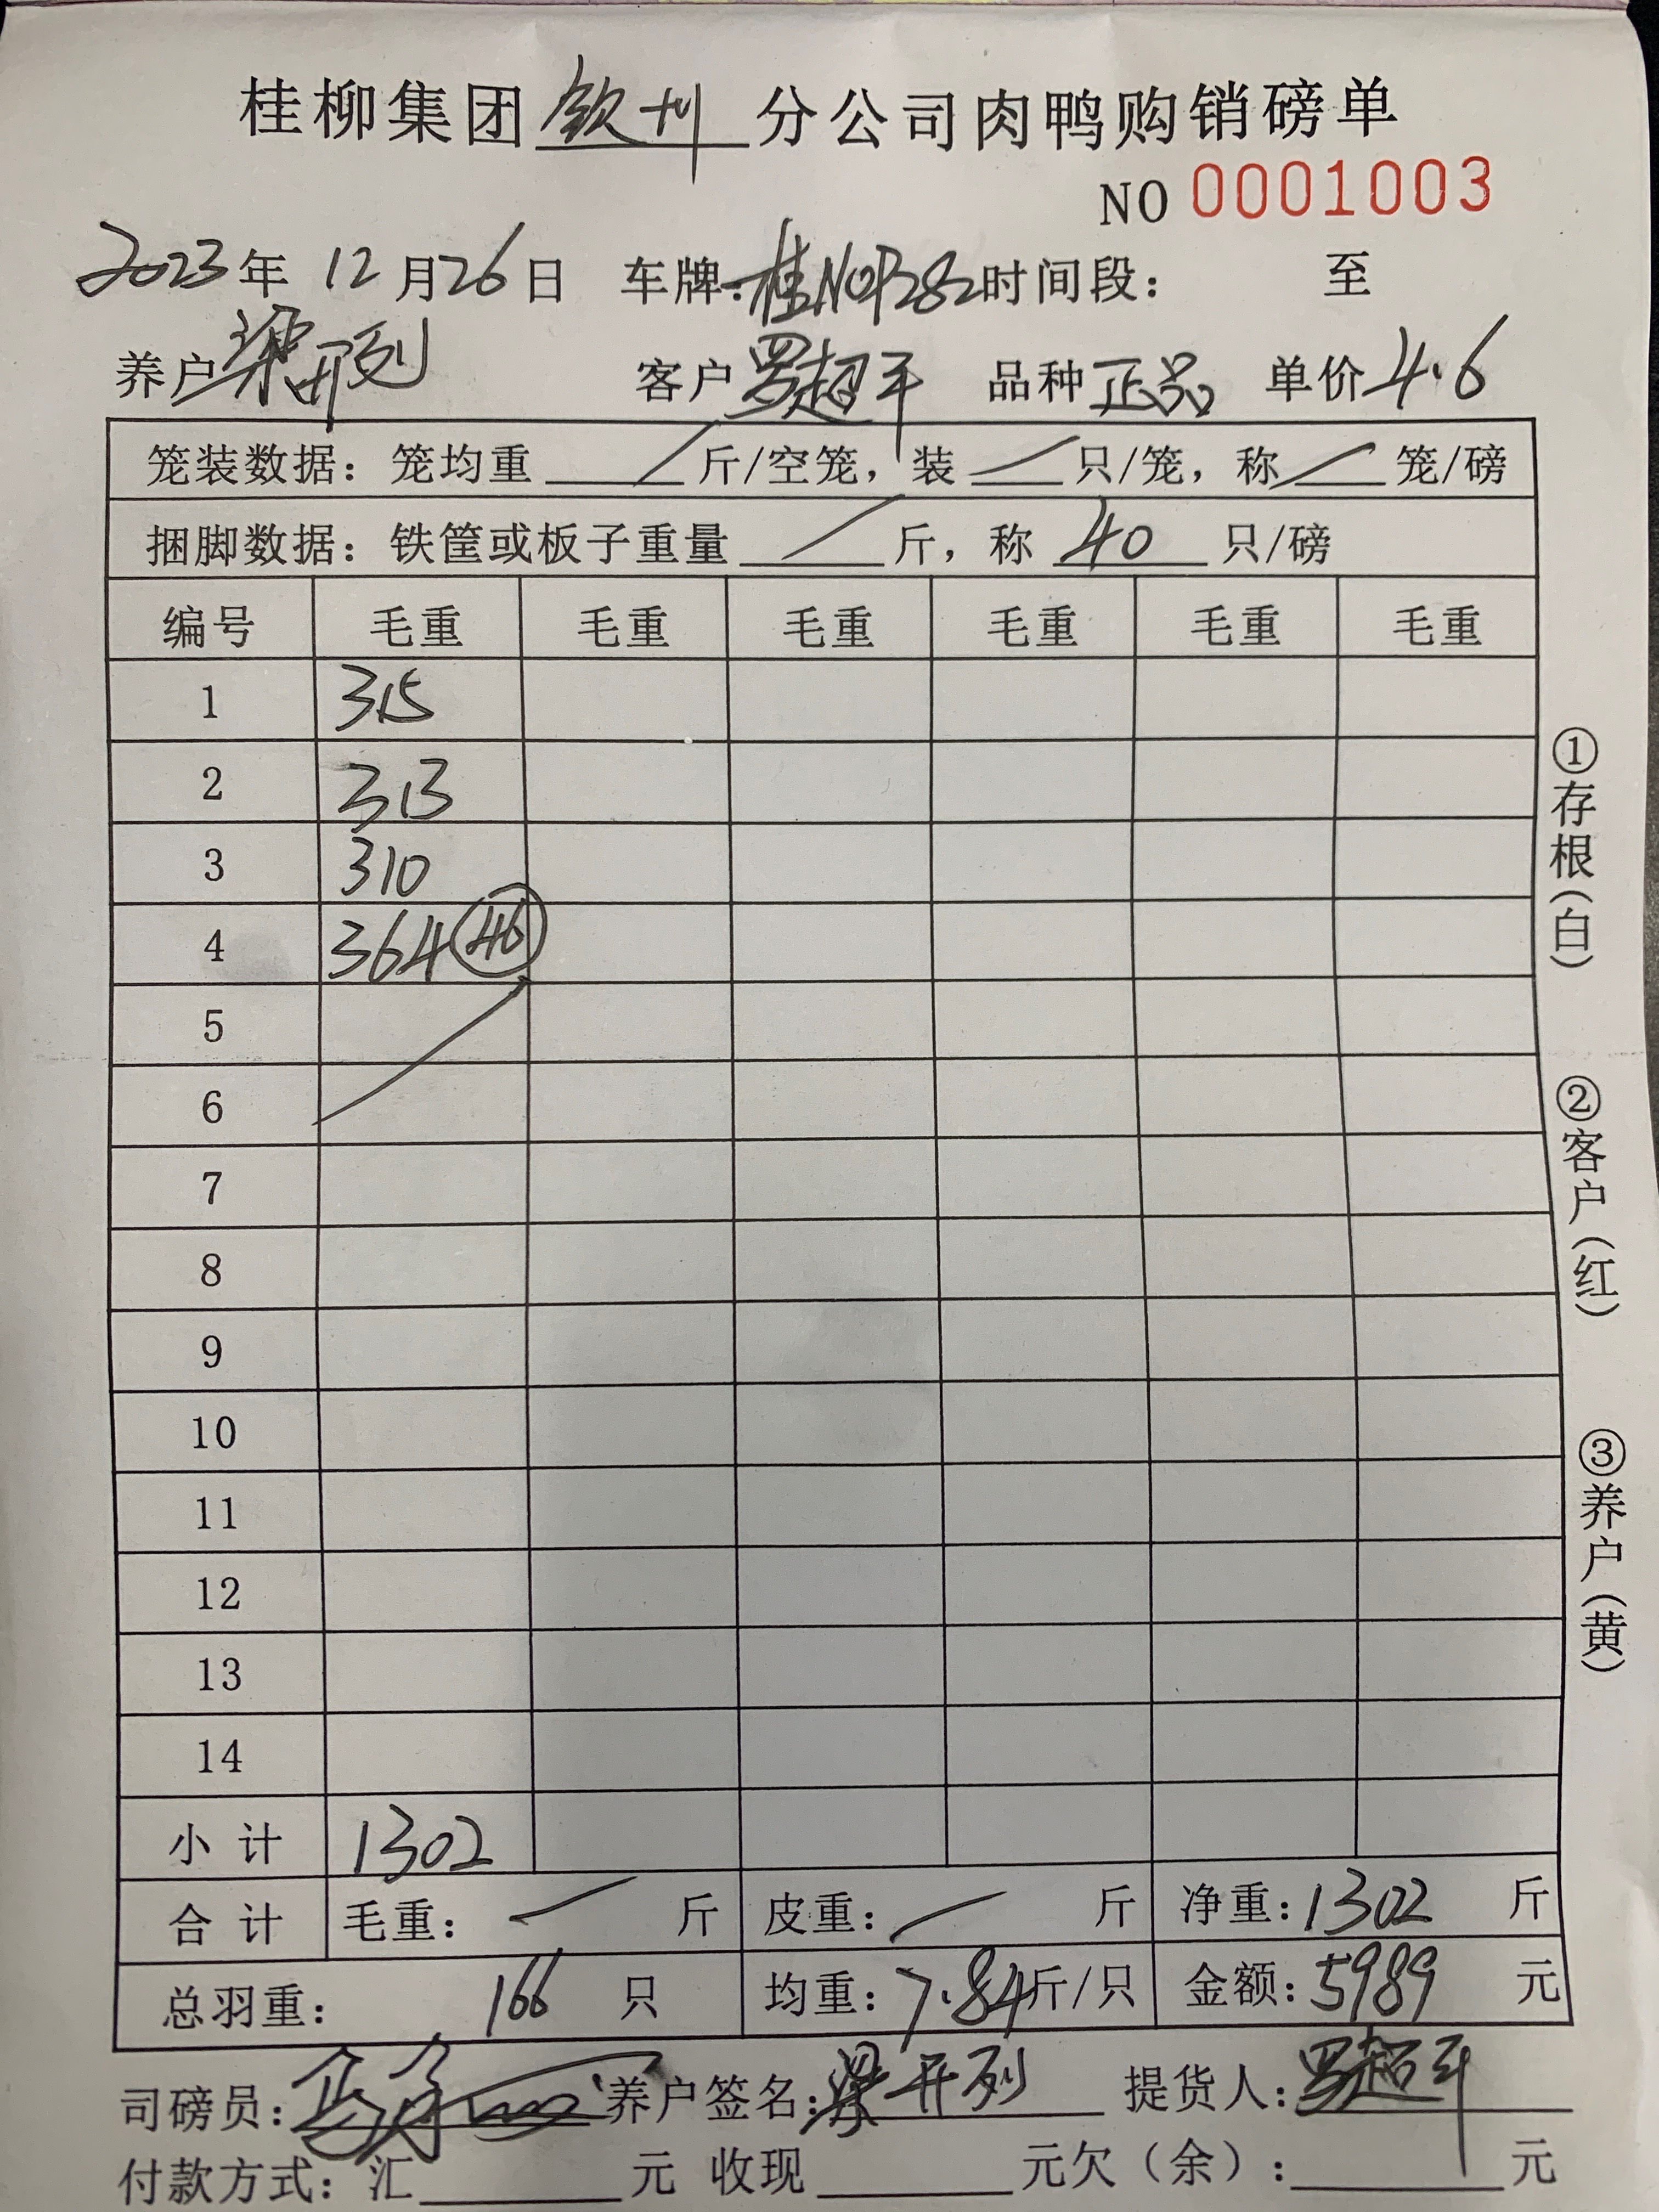 桂柳集团 钦州 分公司肉鸭购销磅单
NO 0001003
2023年 12月26日 车牌:桂N0P282时间段: 至
养户 梁开列 客户 罗超平 品种 正品 单价 4.6
笼装数据: 笼均重 / 斤/空笼, 装 / 只/笼, 称 / 笼/磅
捆脚数据: 铁筐或板子重量 / 斤, 称 40 只/磅
编号 毛重 毛重 毛重 毛重 毛重 毛重
1 315
2 313
3 310
4 364 46
5
6
7
8
9
10
11
12
13
14
小计 1302
合计 毛重: / 斤 皮重: / 斤 净重: 1302 斤
总羽重: 166 只 均重: 7.84斤/只 金额: 5989 元
司磅员: 养户签名: 梁开列 提货人: 罗超平
付款方式: 汇 元 收现 元欠(余): 元
①存根(白)
②客户(红)
③养户(黄)